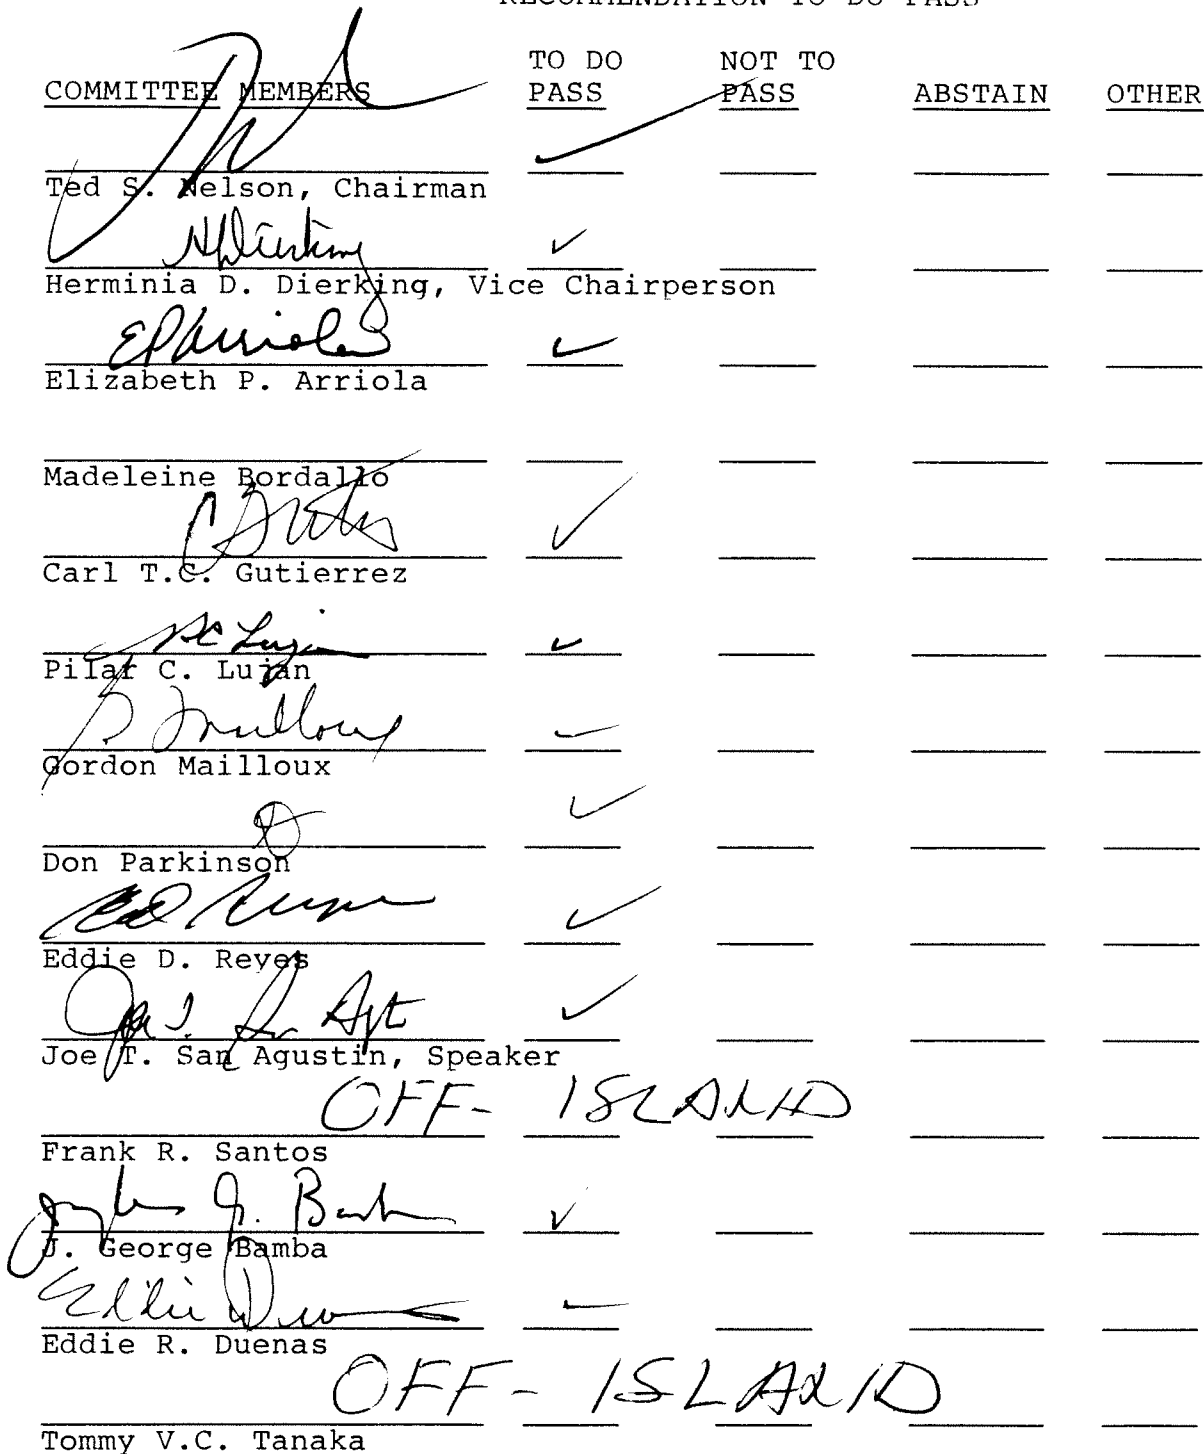 RECOMMENDATION TO DO PASS
COMMITTEE MEMBERS TO DO PASS NOT TO PASS ABSTAIN OTHER
Ted S. Nelson, Chairman
Herminia D. Dierking, Vice Chairperson
EPArriola
Elizabeth P. Arriola
Madeleine Bordallo
Carl T.C. Gutierrez
PC Lujan
Pilar C. Lujan
G Mailloux
Gordon Mailloux
Don Parkinson
Eddie D. Reyes
Joe T. San Agustin, Speaker
OFF-ISLAND
Frank R. Santos
J. George Bamba
Eddie R. Duenas
OFF-ISLAND
Tommy V.C. Tanaka